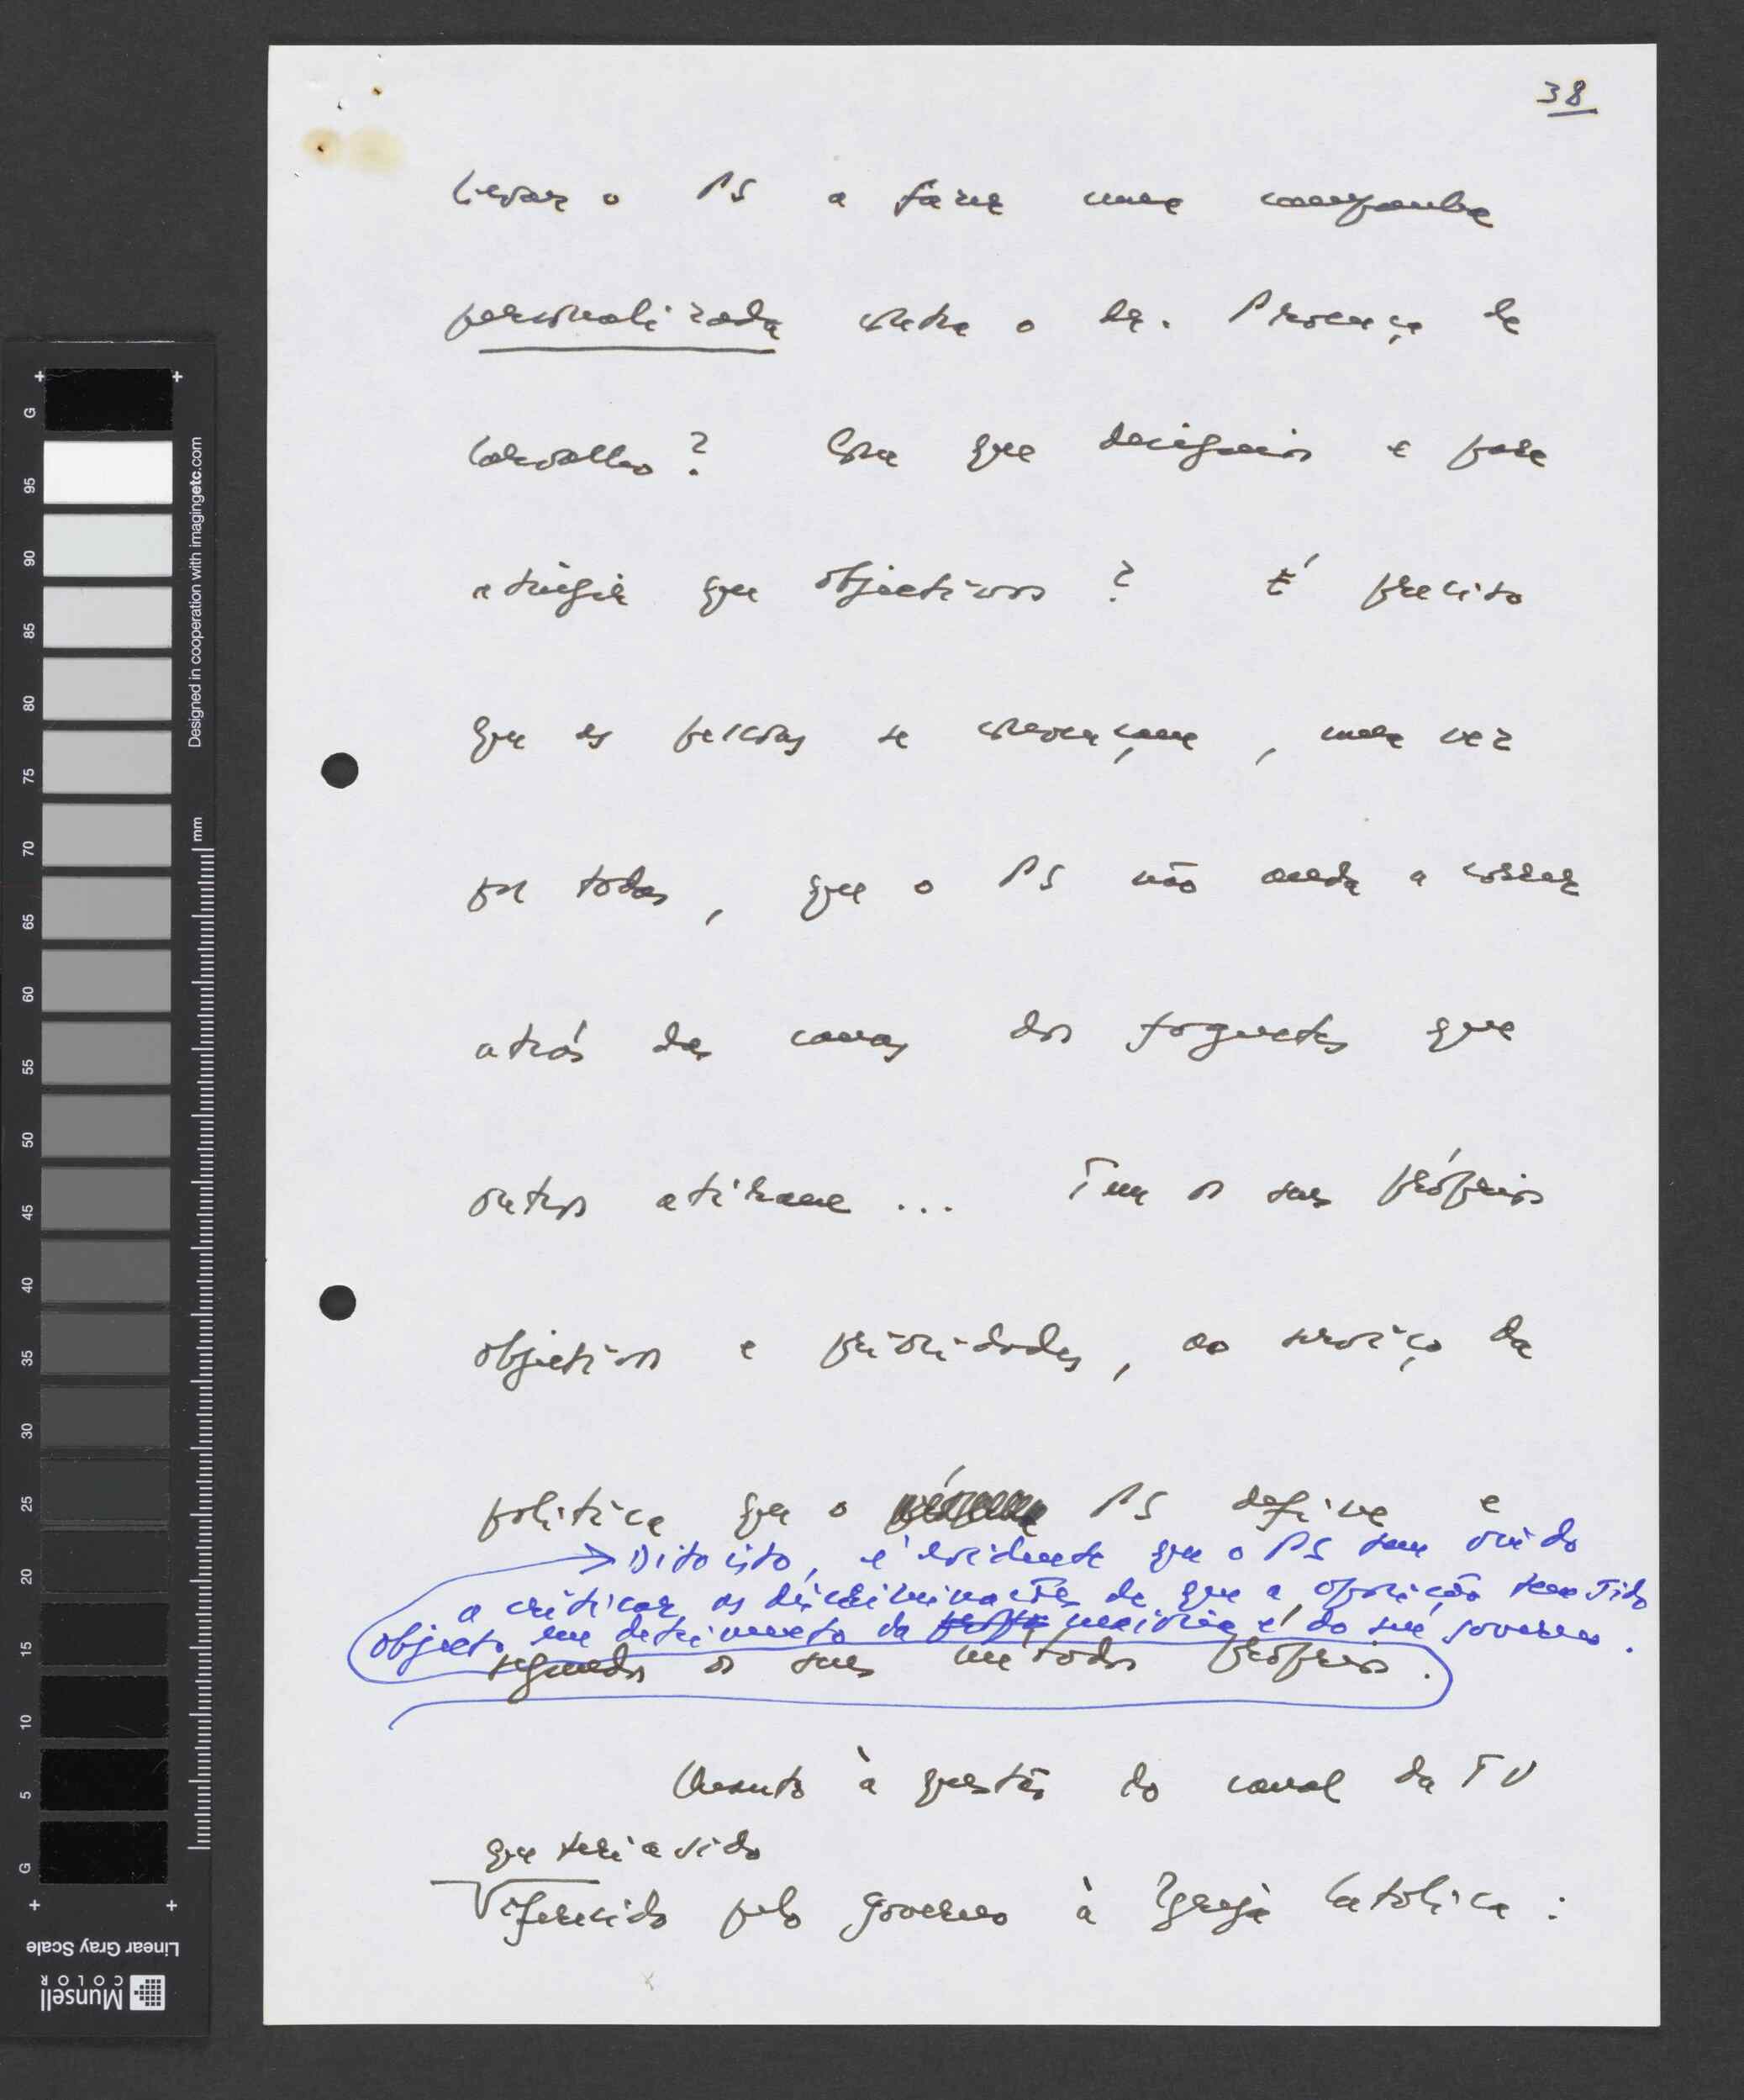 38
levar o PS a fazer uma campanha
personalizada contra o dr. Proença de
Carvalho? Com que desígnios e para
atingir que objectivos? É preciso
que as pessoas se convençam, uma vez
por todas, que o PS não anda a correr
atrás das canas dos foguetes que
outros atiram... Tem os seus próprios
objectivos e prioridades, ao serviço da
política que o PS define e
→ Dito isto, é evidente que o PS tem vindo
a criticar as discriminações de que a oposição tem sido
objecto em detrimento da maioria e do seu governo.
segundo os seus métodos próprios.
Quanto à questão do canal da TV
que teria sido
oferecido pelo governo à Igreja Católica:
G
95
90
85
80
75
70
65
60
55
50
45
40
35
30
25
20
15
10
5
G
mm
Designed in cooperation with imagingetc.com
Linear Gray Scale
Munsell
COLOR